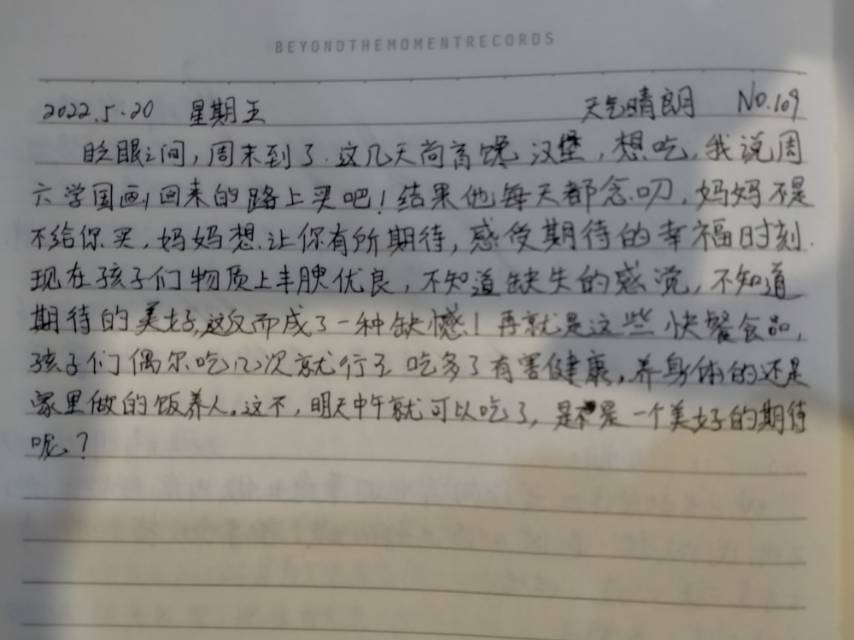 BEYONDTHEMOMENTRECORDS
2022.5.20 星期五 天气晴朗 No.109
眨眼之间,周末到了.这几天尚高馋汉堡,想吃,我说周
六学国画回来的路上买吧!结果他每天都念叨,妈妈不是
不给你买,妈妈想让你有所期待,感受期待的幸福时刻.
现在孩子们物质上丰腴优良,不知道缺失的感觉,不知道
期待的美好,这反而成了一种缺憾!再就是这些快餐食品,
孩子们偶尔吃几次就行了 吃多了有害健康,养身体的还是
家里做的饭养人。这不,明天中午就可以吃了,是不是一个美好的期待
呢?